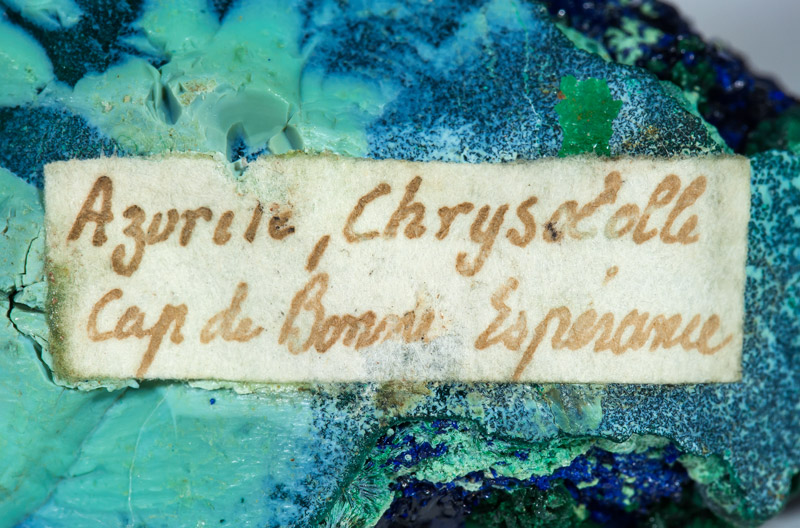 Azurite, Chrysocolle
Cap de Bonne Espérance